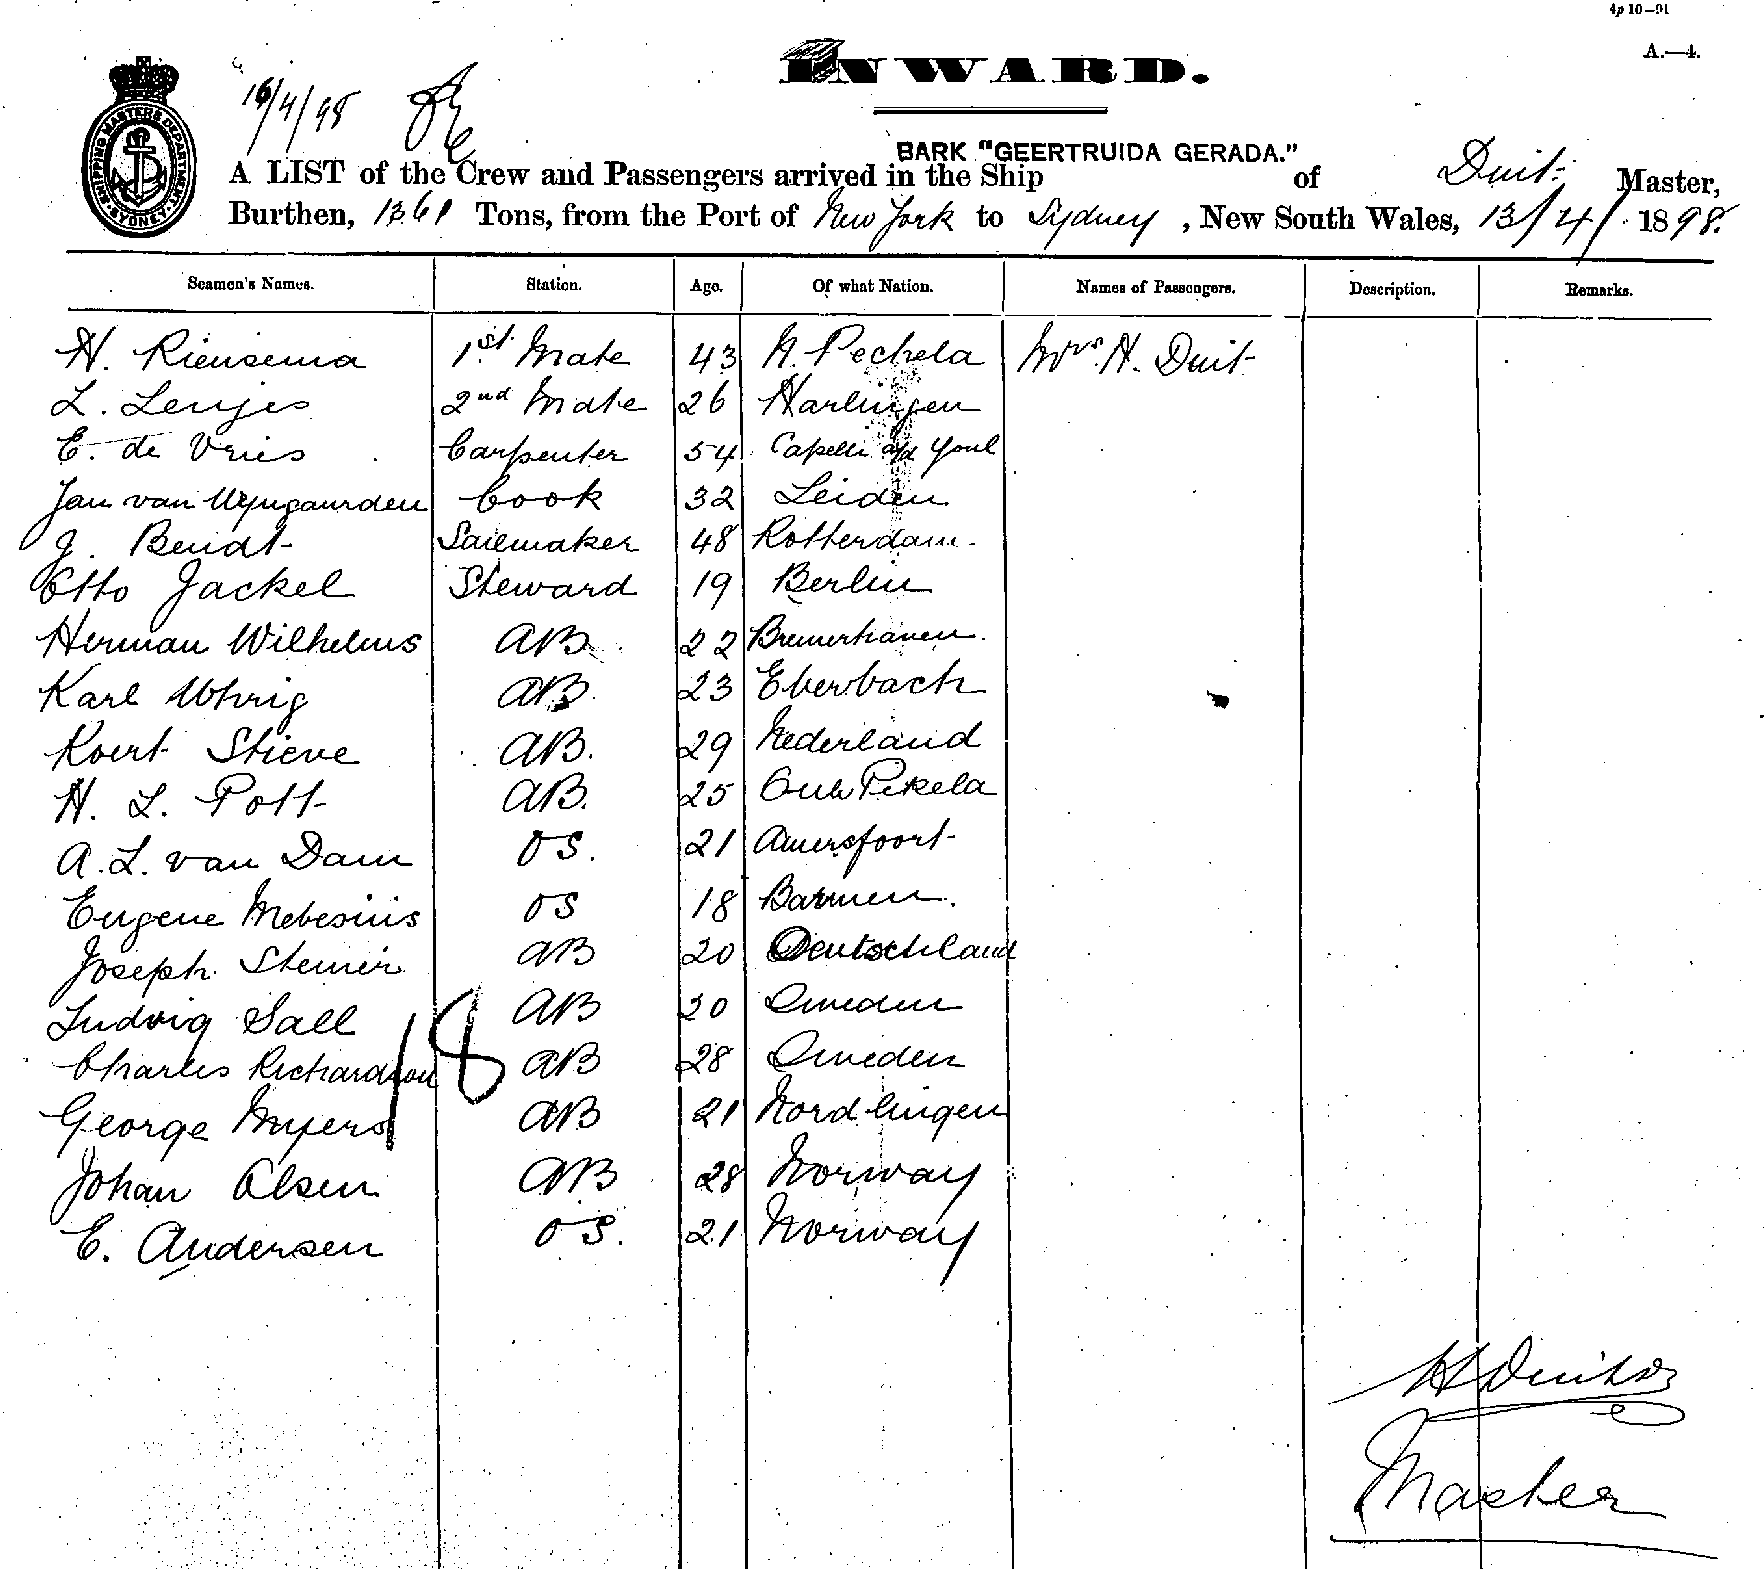 4p 10—91
A.—4.
INWARD.
16/4/98
SHIPPING MASTERS DEPARTMENT SYDNEY
BARK "GEERTRUIDA GERADA."
A LIST of the Crew and Passengers arrived in the Ship of Duit Master,
Burthen, 1361 Tons, from the Port of New York to Sydney, New South Wales, 13/4/ 1898.
Seamen's Names. Station. Age. Of what Nation. Names of Passengers. Description. Remarks.
H. Riensema 1st Mate 43 N. Pechela Mrs. H. Duit
L. 2nd Mate 26 Harlingen
E. de Vries Carpenter 54 Capelle a/d
Jan van Wyngaurden Cook 32 Leiden
J. Bendt Sailmaker 48 Rotterdam.
Otto Jackel Steward 19 Berlin
Herman Wilhelms AB 22 Bremerhaven.
Karl Uhrig AB. 23 Eberbach
Koert Stieve AB. 29 Nederland
H. L. Pott AB. 25 Oude Pekela
A. L. van Dam OS. 21 Amersfoort
Eugene Mebesius OS 18 Barmen.
Joseph Steiner AB 20 Deutschland
Ludvig Sall AB 20 Sweden
18
Charles Richardson AB 28 Sweden
George Myers AB 21 Nordlingen
Johan Olsen AB 28 Norway
E. Andersen OS. 21 Norway
Master